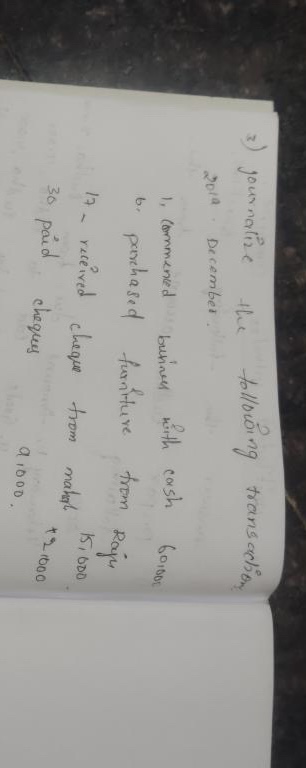 3) Journalize the following transaction
2019. December.
1, commenced business with cash 60,000
6. purchased furniture from Raju
15,000.
17 - received cheque from mahesh 42,000
30. paid cheques 9,000.